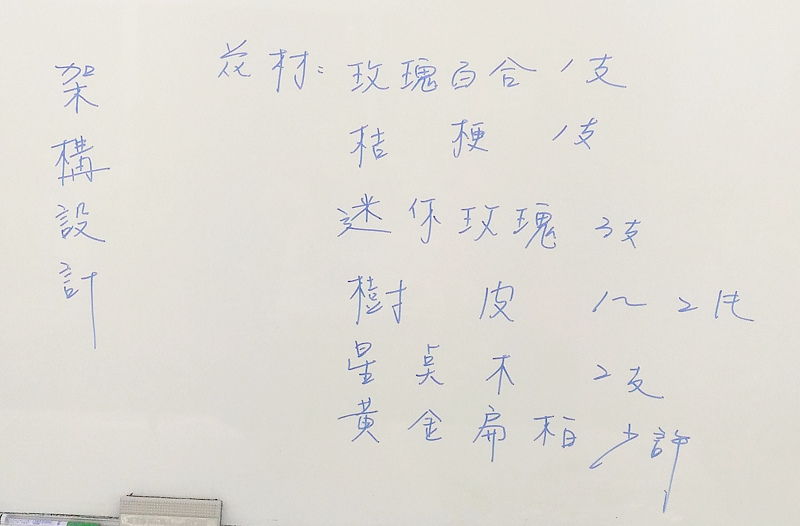 架構設計
花材：玫瑰百合1支
桔梗 1支
迷你玫瑰 3支
樹皮 1~2片
星點木 2支
黃金扁柏 少許